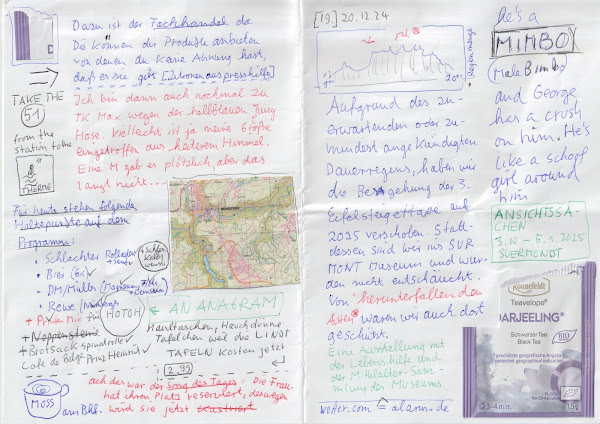 Dazu ist der Fachhandel da
Die können dir Produkte anbieten
von denen du keine Ahnung hast,
daß es sie gibt [Zitronenauspresshilfe]
TAKE THE
51
from the
station to the
THERME
Ich bin dann auch nochmal zu
TK Max wegen der hellblauen Jucy
Hose. Vielleicht ist ja meine Größe
eingetroffen aus heiterem Himmel.
Eine M gab es plötzlich, aber das
langt nicht...
Für heute stehen folgende
Haltepunkte auf dem
Programm:
Schlachter Rolladen
+ senf
+ Schlen
Kalbs
wurst
Bies (6€)
DM/Müller (Magnesium,
Rewe
+ für HOTOH
+ Brotsack
Café de Prinz Heinrich
(AN ANAGRAM)
Hauttaschen, Hauchdünne
Täfelchen weil die LINDT
TAFELN kosten jetzt
2,99
MOSS
am Bhf.
ach der war der Song des Tages: Die Frau
hat ihren Platz reserviert, deswegen
wird sie jetzt
[19.] 20.12.24
Regenmenge
9°°
20°°
Aufgrund des zu
erwartenden oder zu-
mindest angekündigten
Dauerregens, haben wir
die Begehung der 3.
Eifelsteigettape auf
2025 verschoben. Statt-
dessen sind wir ins SUR
MONT Museum und wur-
den nicht enttäuscht.
Von "herunterfallenden
Ästen" waren wir auch dort
geschützt.
Eine Ausstellung mit
der Lebenshilfe und
der Mittelalter-Samm-
lung des Museums
wetter.com = alarm.de
He's a
MIMBO
(Male Bimbo)
and George
has a crush
on him. He's
like a school
girl around
him
ANSICHTSSA-
CHEN
3.10 - 5.1.2025
SUERMONDT
Ronnefeldt
Teavelope®
DARJEELING®
Schwarzer Tee
Black Tea
BIO
geschützte geografische Angabe
protected geographical indication
3-4 min.
1,5g